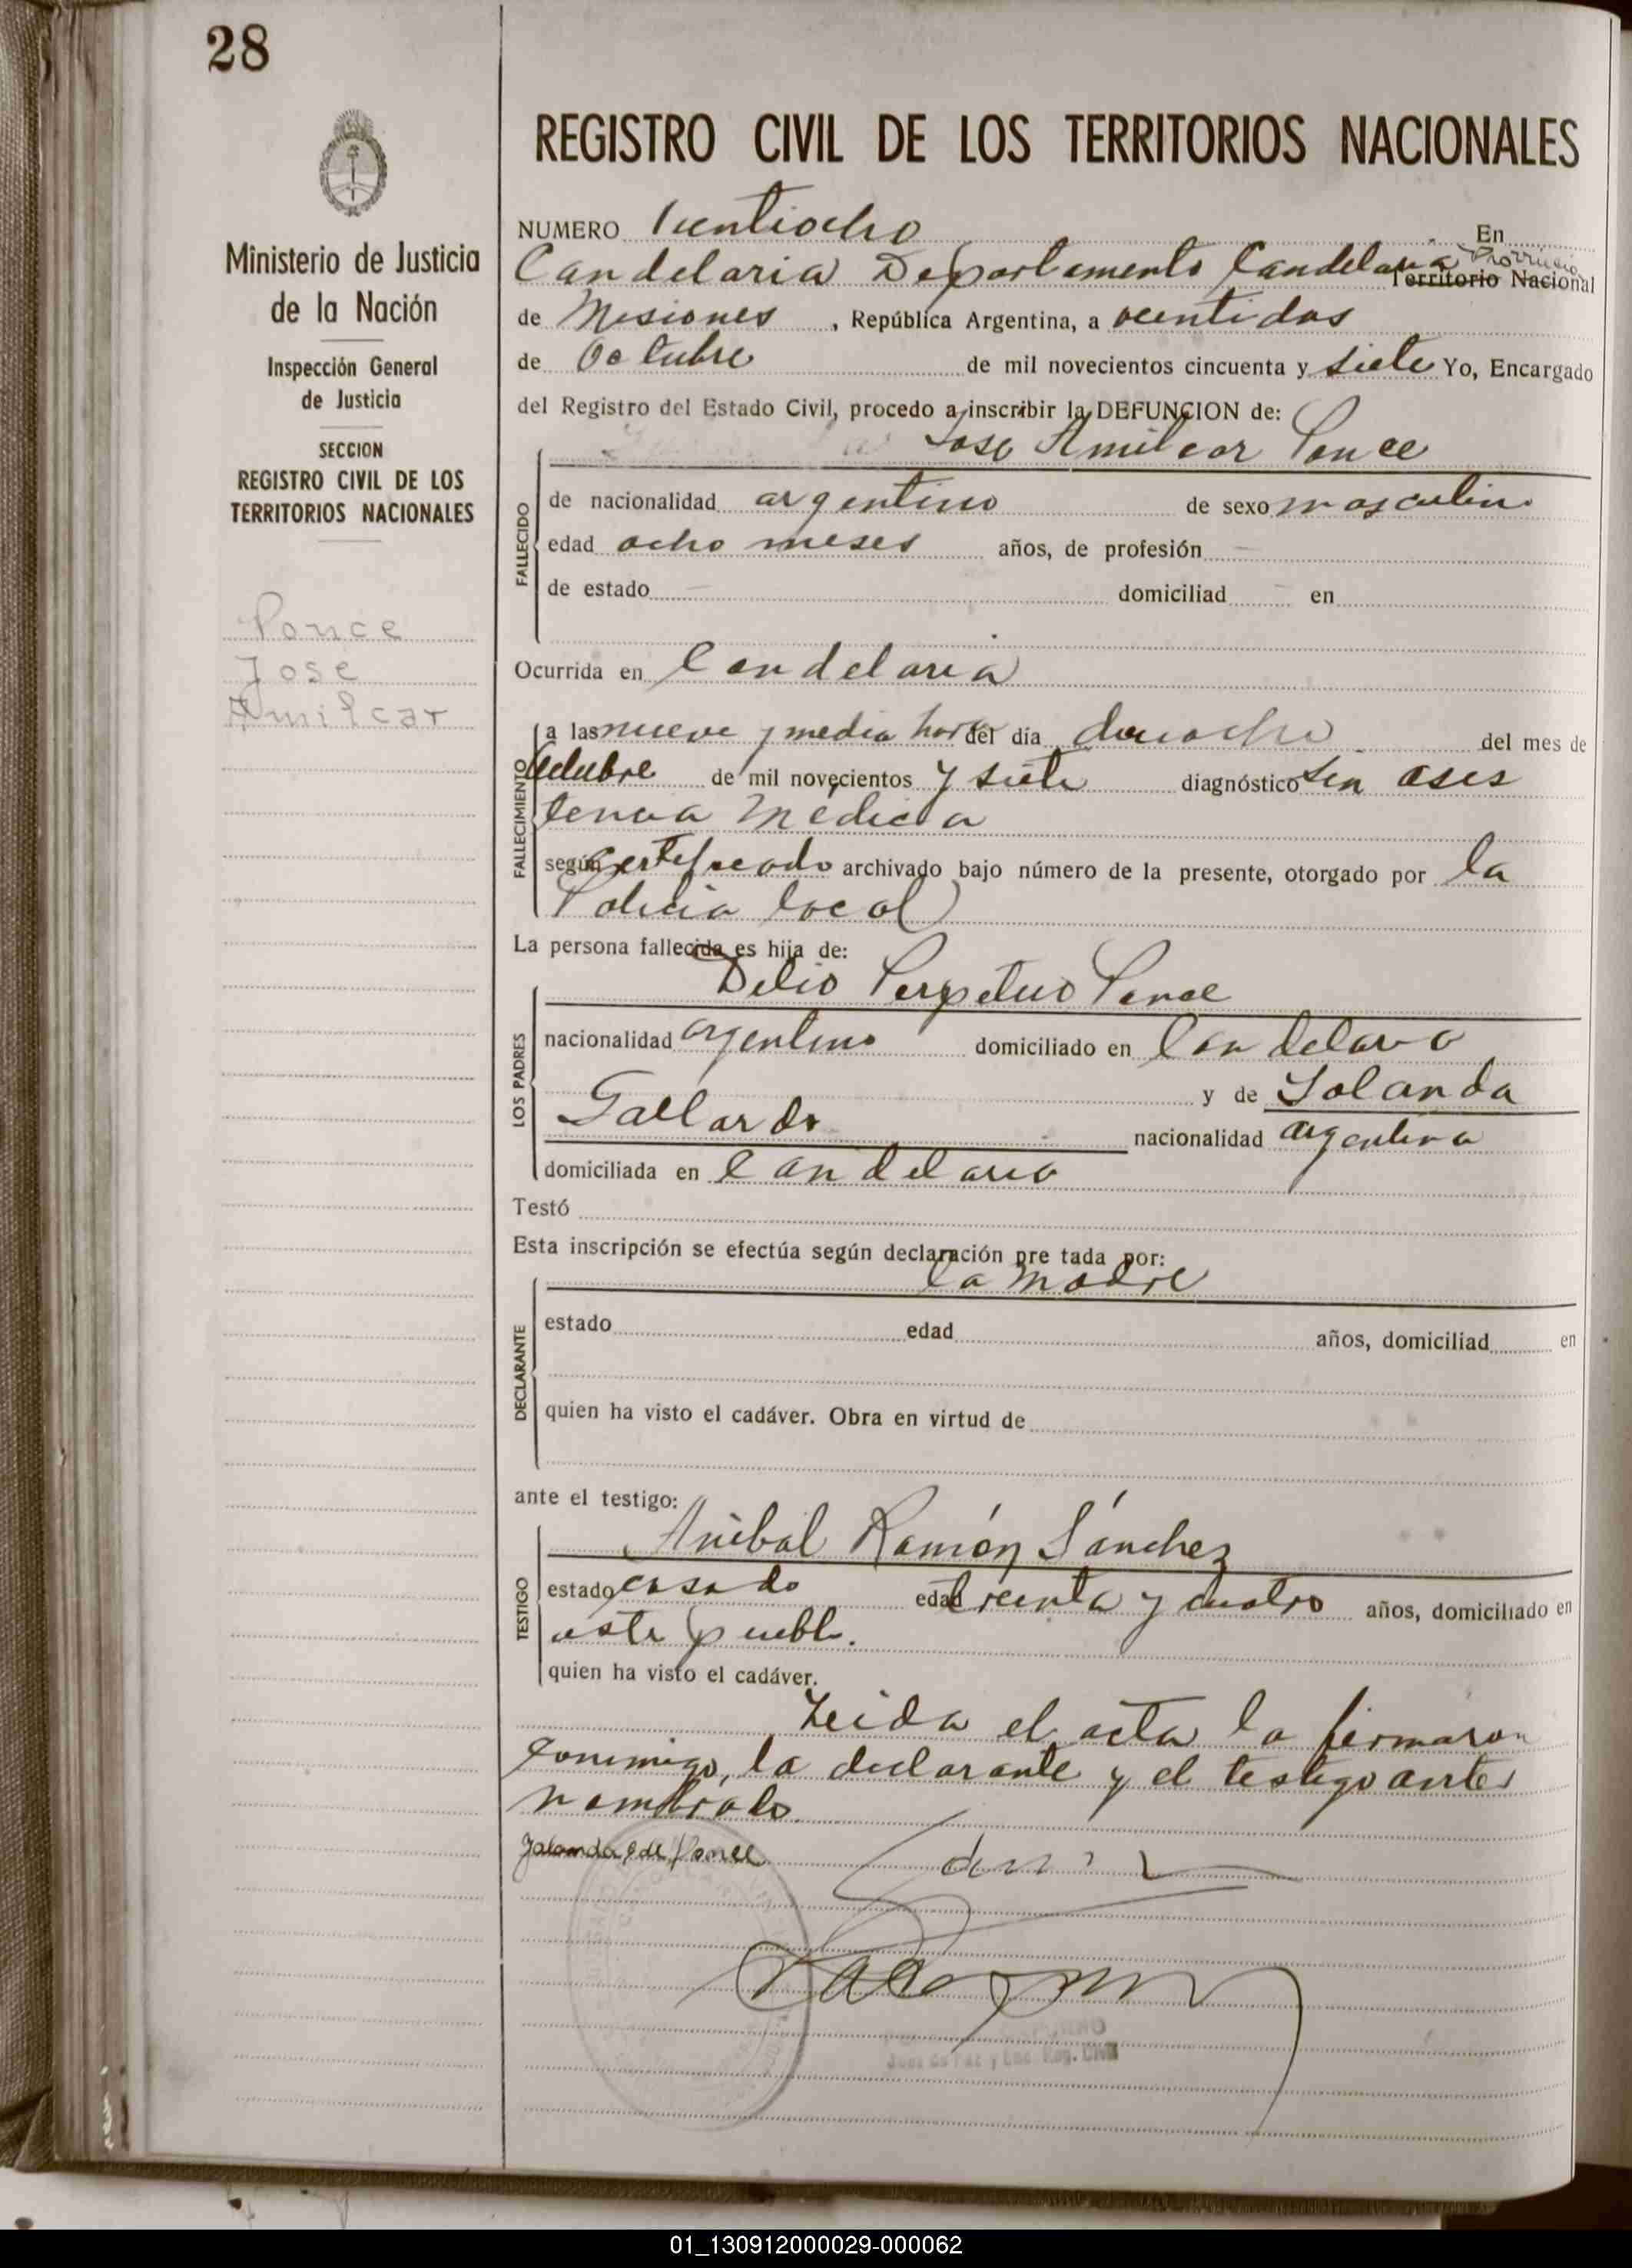 28
Ministerio de Justicia
de la Nación
Inspección General
de Justicia
SECCION
REGISTRO CIVIL DE LOS
TERRITORIOS NACIONALES
Ponce
Jose
Amilcar
REGISTRO CIVIL DE LOS TERRITORIOS NACIONALES
NUMERO Veintiocho En
Candelaria Departamento Candelaria Provincia Territorio Nacional
de Misiones , República Argentina, a veintidos
de Octubre de mil novecientos cincuenta y siete Yo, Encargado
del Registro del Estado Civil, procedo a inscribir la DEFUNCION de:
Jose Amilcar Ponce
FALLECIDO
de nacionalidad argentino de sexo masculino
edad ocho meses años, de profesión
de estado domiciliad en
Ocurrida en Candelaria
FALLECIMIENTO
a las nueve y media horas del día dieciocho del mes de
Octubre de mil novecientos y siete diagnóstico sin asis
tencia Médica
según certificado archivado bajo número de la presente, otorgado por la
Policia local
La persona fallecida es hija de:
LOS PADRES
Delio Perpetuo Ponce
nacionalidad argentino domiciliado en Candelaria
y de Yolanda
Gallardo nacionalidad argentina
domiciliada en Candelaria
Testó
Esta inscripción se efectúa según declaración pre tada por:
la madre
DECLARANTE
estado edad años, domiciliad en
quien ha visto el cadáver. Obra en virtud de
ante el testigo:
Aníbal Ramón Sánchez
TESTIGO
estado casado edad treinta y cuatro años, domiciliado en
este pueblo.
quien ha visto el cadáver.
Leida el acta la firmaron
conmigo, la declarante y el testigo antes
nombrado.
Yolanda G de Ponce
Juez de Paz y Enc. Reg. Civil
01_130912000029-000062